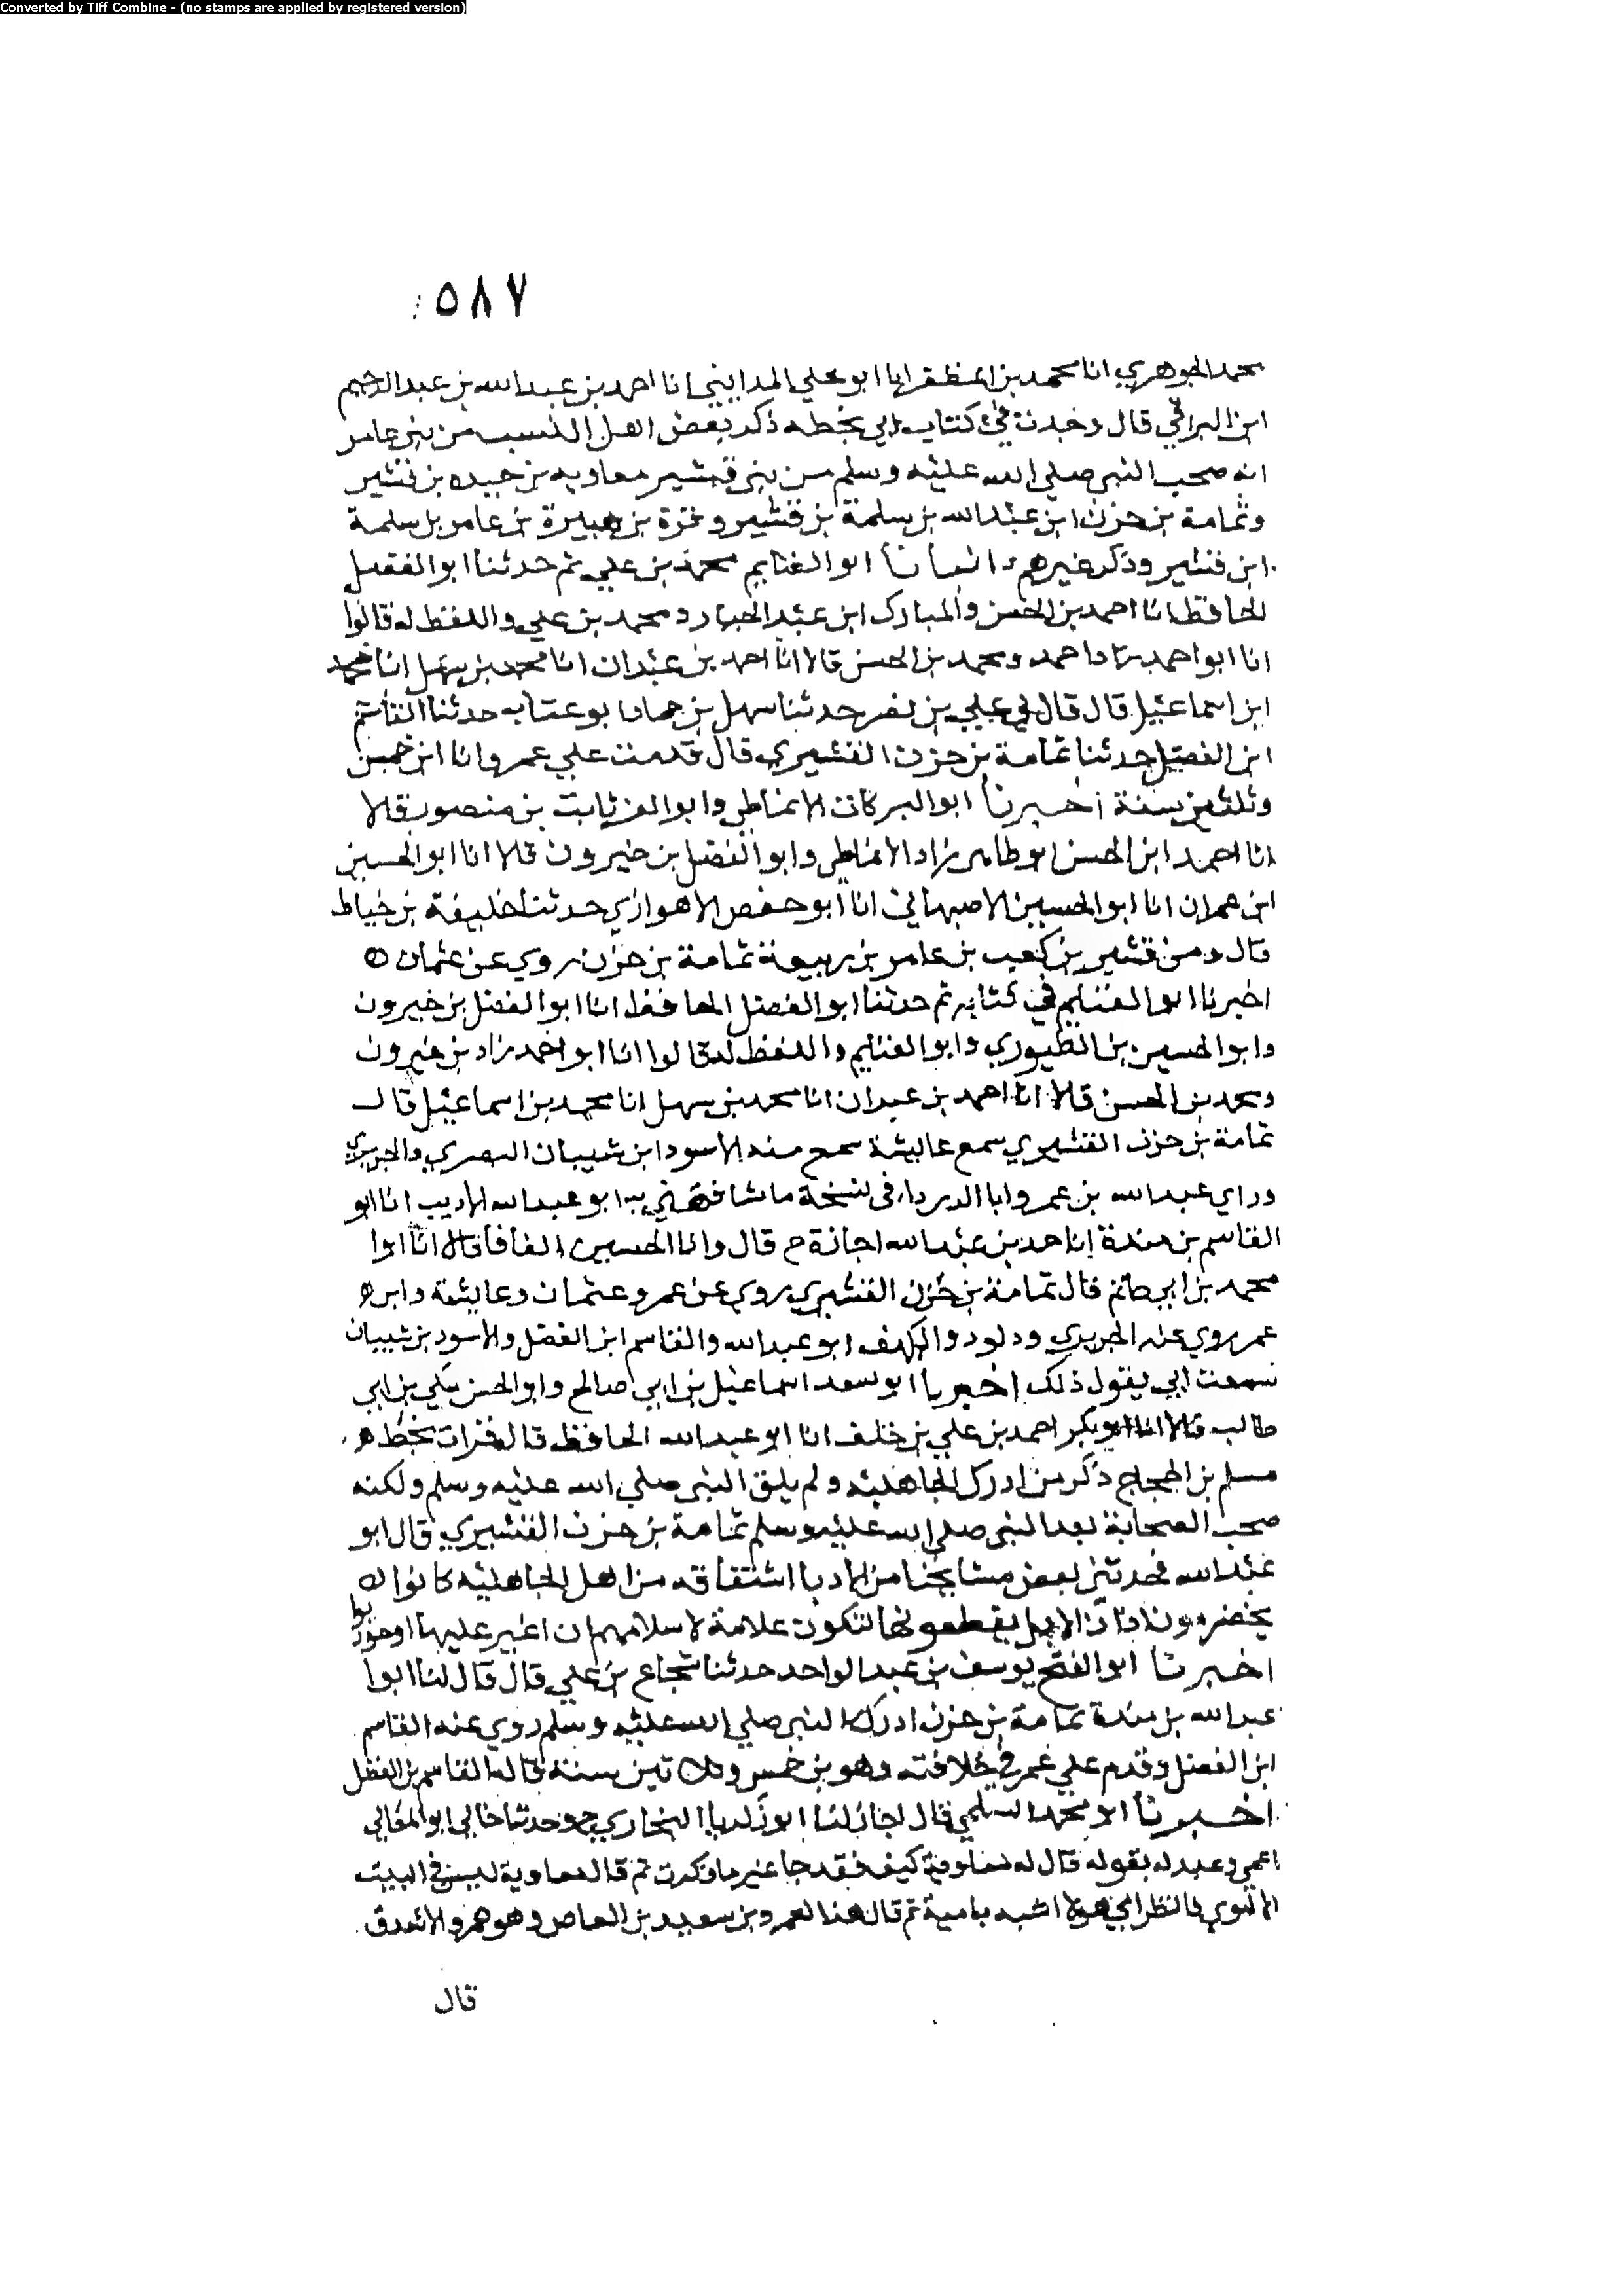 Converted by Tiff Combine - (no stamps are applied by registered version)
٥٨٧
محمد الجوهري انا محمد بن المظفر انا ابو علي المدايني انا احمد بن عبد الله بن عبد الرحيم
ابن البراقي قال وجدت في كتاب ابي بخطه ذكر بعض اهل النسب من بني عامر
انه صحب النبي صلي الله عليه وسلم من بني قشير معاويه بن حيده بن قشير
وثمامة بن حزن ابن عبد الله بن سلمة بن قشير وقرة بن هبيرة بن عامر بن سلمة
ابن قشير وذكر غيرهم انبانا ابو الغنايم محمد بن علي ثم حدثنا ابو الفضل
الحافظ انا احمد بن الحسن والمبارك ابن عبد الجبار ومحمد بن علي واللفظ له قالوا
انا ابو احمد زاد احمد ومحمد بن الحسن قالا انا احمد بن عبدان انا محمد بن سهل انا محمد
ابن اسماعيل قال قال لي علي بن نصر حدثنا سهل بن حماد ابو عتاب حدثنا القاسم
ابن الفضل حدثنا ثمامة بن حزن القشيري قال قدمت علي عمر وانا ابن خمس
وثلثين سنة اخبرنا ابو البركات الانماطي وابو العز ثابت بن منصور قالا
انا احمد ابن الحسن ابو طاهر زاد الانماطي وابو الفضل بن خيرون قالا انا ابو الحسين
ابن عمران انا ابو الحسين الاصبهاني انا ابو حفص الاهوازي حدثنا خليفة بن خياط
قال ومن قشير بن كعب بن عامر بن ربيعة ثمامة بن حزن روي عن عثمان ه
اخبرنا ابو الغنايم في كتابه ثم حدثنا ابو الفضل الحافظ انا ابو الفضل بن خيرون
وابو الحسين بن الطيوري وابو الغنايم واللفظ له قالوا انا ابو احمد زاد بن خيرون
ومحمد بن الحسن قالا انا احمد بن عبدان انا محمد بن سهل انا محمد بن اسماعيل قال
ثمامة بن حزن القشيري سمع عايشة سمع منه الاسود ابن شيبان البصري والجريري
وراي عبد الله بن عمر وابا الدرداء في نسخة ما شافهني به ابو عبد الله الاديب انا ابو
القاسم بن مندة انا حمد بن عبد الله اجازة ح قال وانا الحسين الفأفأ قالا انا ابوا
محمد بن ابي حاتم قال ثمامة بن حزن القشيري روي عن عمر وعثمان وعايشة وابن
عمر روي عنه الجريري وداود والكهف ابو عبد الله والقاسم ابن الفضل والاسود بن شيبان
سمعت ابي يقول ذلك اخبرنا ابو سعد اسماعيل بن ابي صالح وابو الحسن مكي بن ابي
طالب قالا انا ابو بكر احمد بن علي بن خلف انا ابو عبد الله الحافظ قال قرات بخط
مسلم بن الحجاج ذكر من ادرك الجاهليه ولم يلق النبي صلي الله عليه وسلم ولكنه
صحب الصحابة بعد النبي صلي الله عليه وسلم ثمامة بن حزن القشيري قال ابو
عبد الله فحدثني بعض مشايخنا من الادبا اشتقاقه من اهل الجاهليه كانوا
يخضرمون اذان الابل يقطعونها لتكون علامة لاسلامهم ان اغير عليها او حوربوا
اخبرنا ابو الفتح يوسف بن عبد الواحد حدثنا شجاع بن علي قال قال لنا ابوا
عبد الله بن مندة ثمامة بن حزن ادرك النبي صلي الله عليه وسلم روي عنه القاسم
ابن الفضل وقدم علي عمر في خلافته وهو بن خمس وثلاثين سنة قاله القاسم بن الفضل
اخبرنا ابو محمد السلمي قال اجاز لنا ابو زكريا البخاري ح وحدثنا خالي ابو المعالي
اعمي وعبد له يقوله قال له معاوية كيف فقد جا غير ما ذكرت ثم قال معاوية ليس في البيت
الاموي فانظر اي هولا اشبه بامية ثم قال هذا لعمرو بن سعيد بن العاص وهو عمرو الاشدق
قال